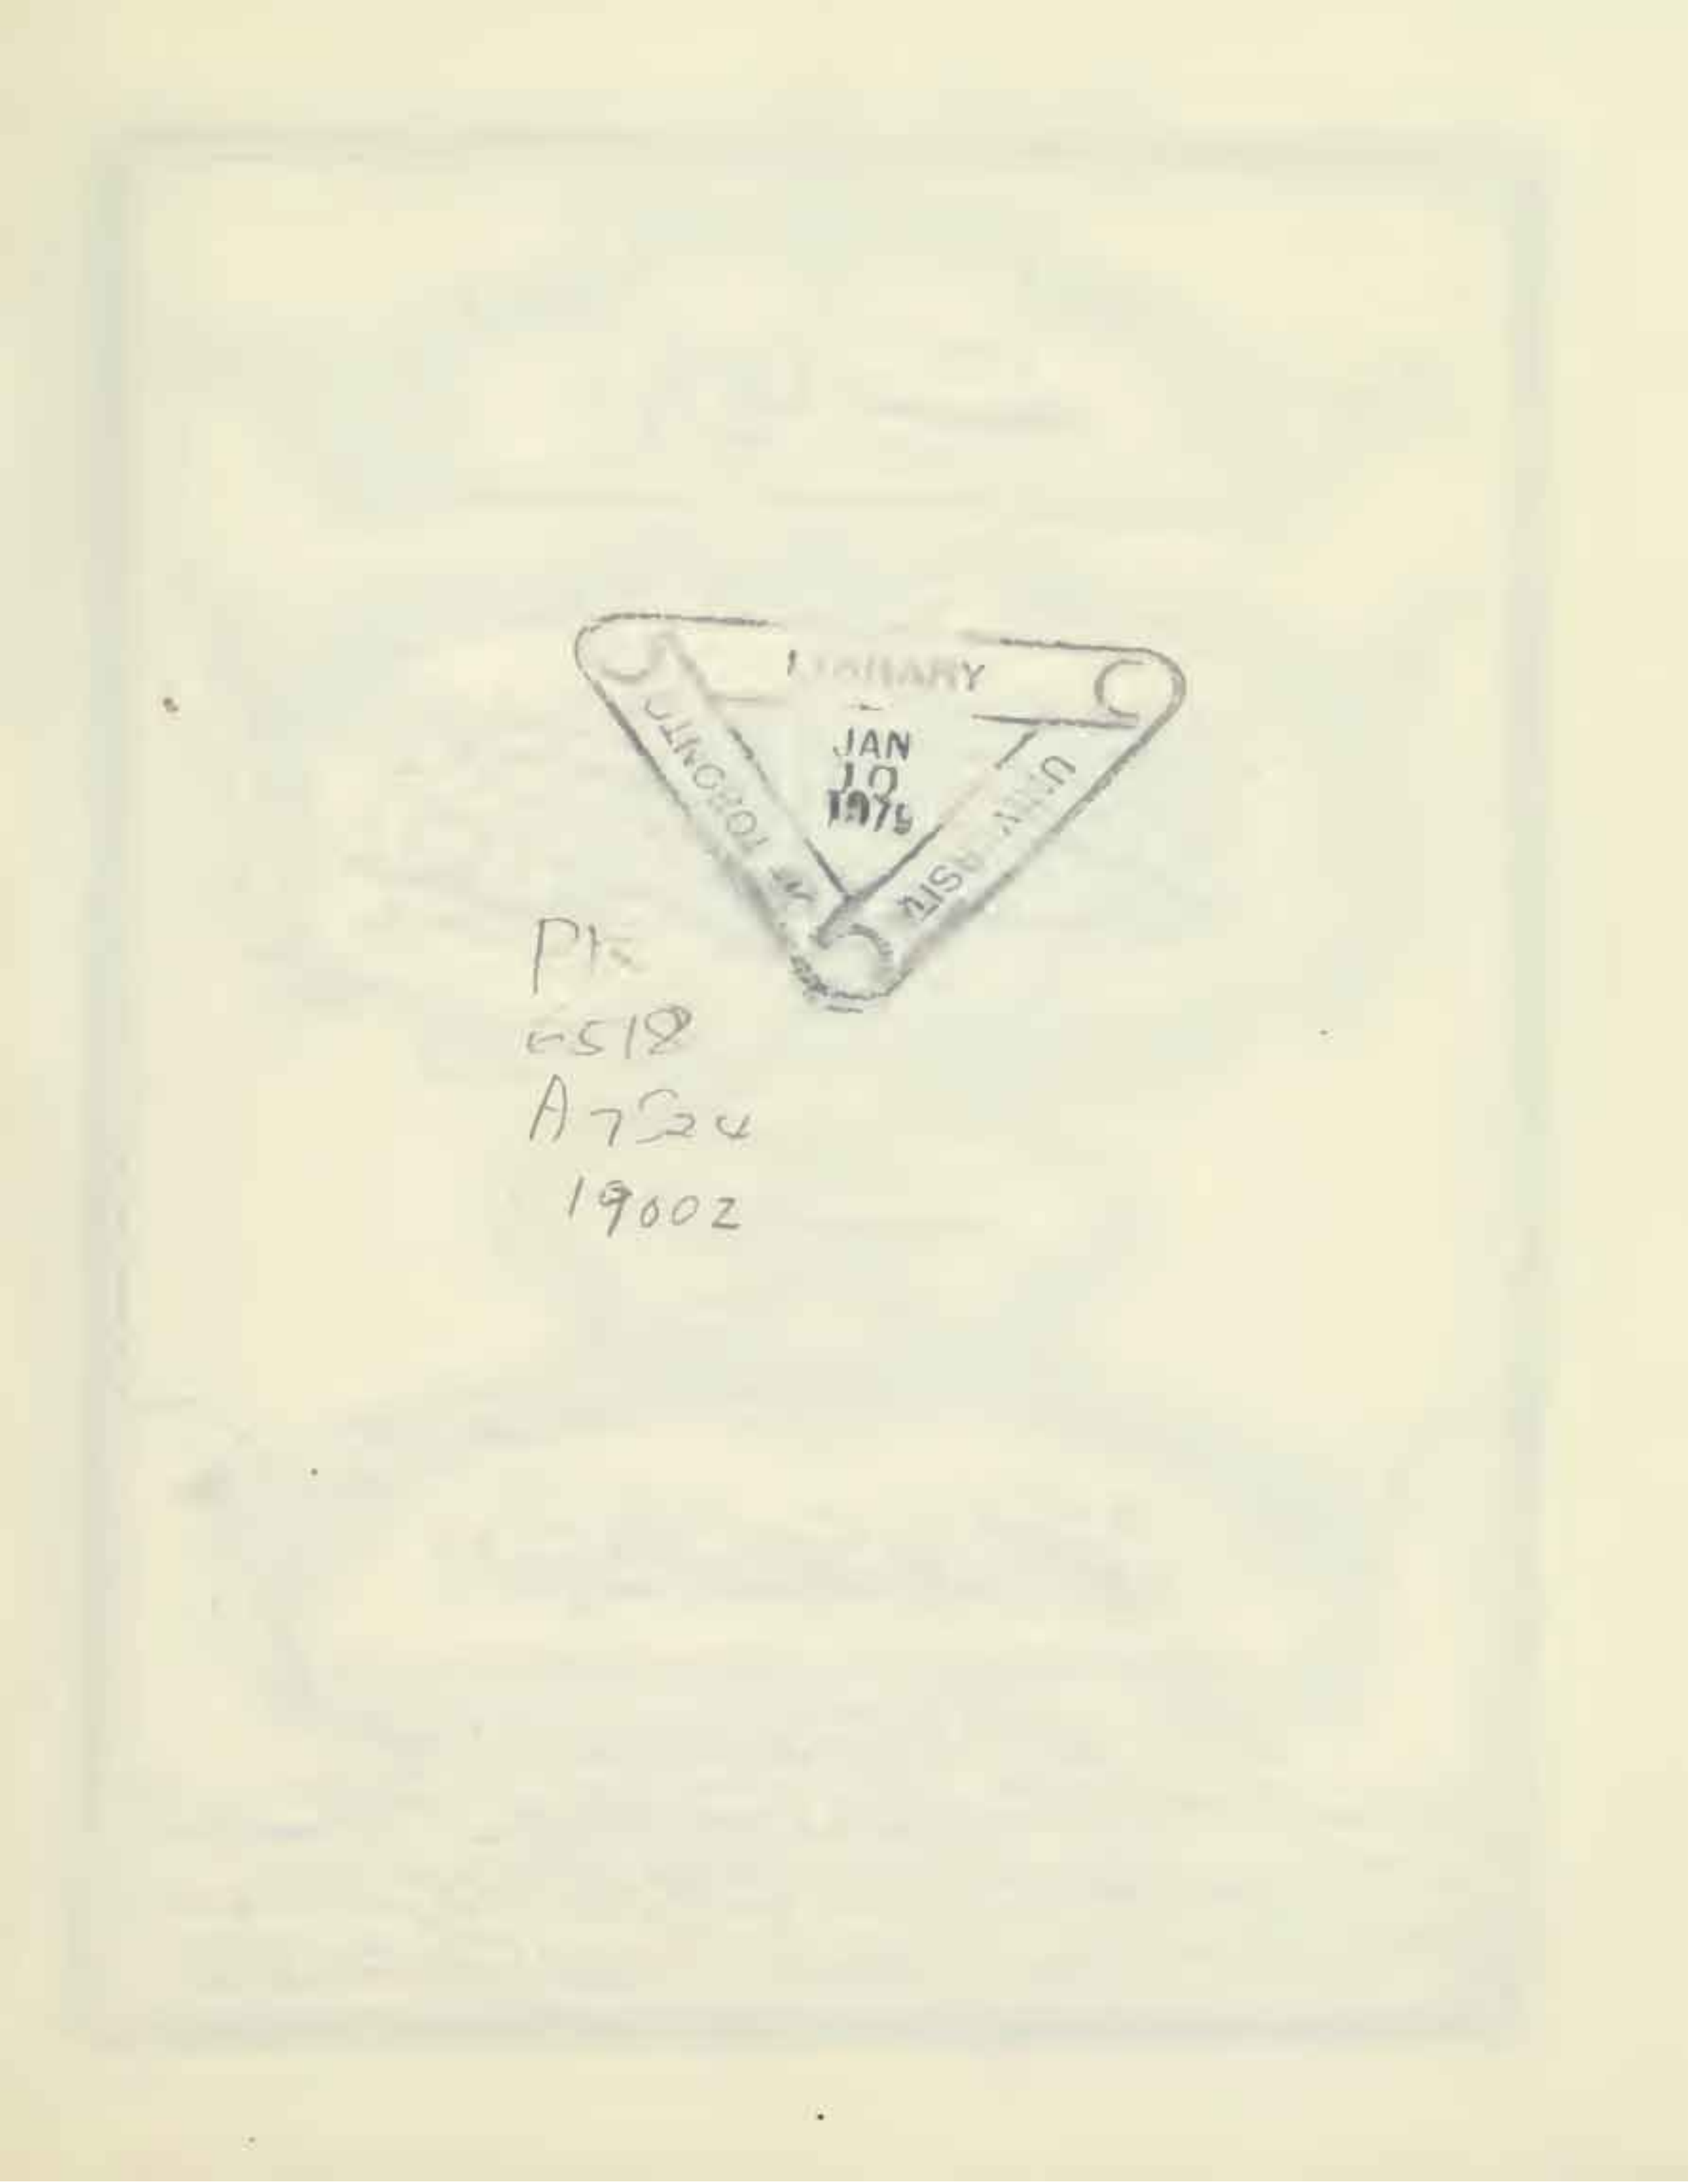 LIBRARY
JAN
10
1979
UNIVERSITY
OF TORONTO
A7524
19002